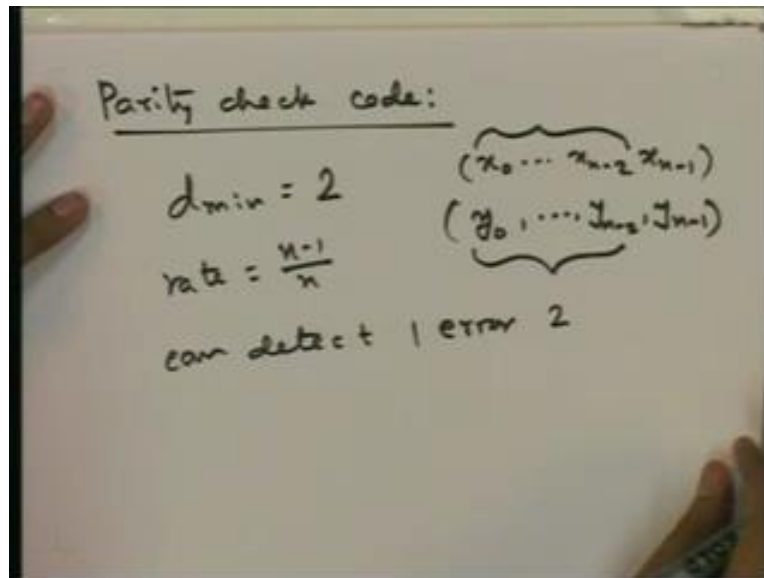 Parity check code:
d_min = 2
(x_0 ... x_{n-2} x_{n-1})
(y_0, ..., y_{n-2}, y_{n-1})
rate = \frac{n-1}{n}
can detect 1 error 2